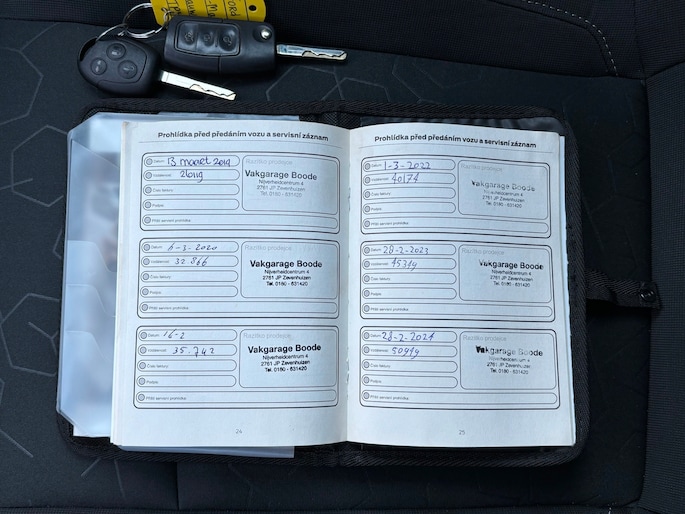 Prohlídka před předáním vozu a servisní záznam
Datum: 13 maart 2019
Vzdálenost:
Číslo faktury:
Podpis:
Příští servisní prohlídka:
Razítko prodejce
Vakgarage Boode
Nijverheidcentrum 4
2761 JP Zevenhuizen
Tel. 0180 - 631420
Datum: 6-3-2020
Vzdálenost: 32.866
Číslo faktury:
Podpis:
Příští servisní prohlídka:
Razítko prodejce
Vakgarage Boode
Nijverheidcentrum 4
2761 JP Zevenhuizen
Tel. 0180 - 631420
Datum: 16-2
Vzdálenost: 35.742
Číslo faktury:
Podpis:
Příští servisní prohlídka:
Razítko prodejce
Vakgarage Boode
Nijverheidcentrum 4
2761 JP Zevenhuizen
Tel. 0180 - 631420
24
Prohlídka před předáním vozu a servisní záznam
Datum: 1-3-2022
Vzdálenost: 40174
Číslo faktury:
Podpis:
Příští servisní prohlídka:
Razítko prodejce
Vakgarage Boode
Nijverheidcentrum 4
2761 JP Zevenhuizen
Tel. 0180 - 631420
Datum: 28-2-2023
Vzdálenost: 45349
Číslo faktury:
Podpis:
Příští servisní prohlídka:
Razítko prodejce
Vakgarage Boode
Nijverheidcentrum 4
2761 JP Zevenhuizen
Tel. 0180 - 631420
Datum: 28-2-2024
Vzdálenost: 50949
Číslo faktury:
Podpis:
Příští servisní prohlídka:
Razítko prodejce
Vakgarage Boode
Nijverheidcentrum 4
2761 JP Zevenhuizen
Tel. 0180 - 631420
25